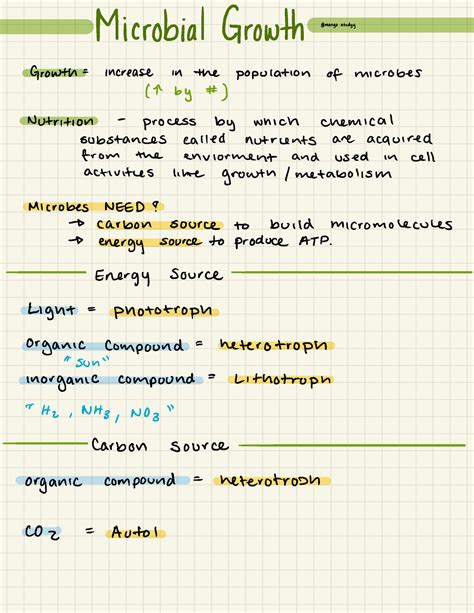 Microbial Growth @mango.studyy
Growth = increase in the population of microbes
(↑ by #)
Nutrition - process by which chemical
substances called nutrients are acquired
from the enviorment and used in cell
activities like growth / metabolism
Microbes NEED?
→ carbon source to build micromolecules
→ energy source to produce ATP.
Energy Source
Light = phototroph
organic compound = heterotroph
"sun"
inorganic compound = Lithotroph
"H₂, NH₃, NO₃"
Carbon source
organic compound = heterotroph
CO₂ = Autol